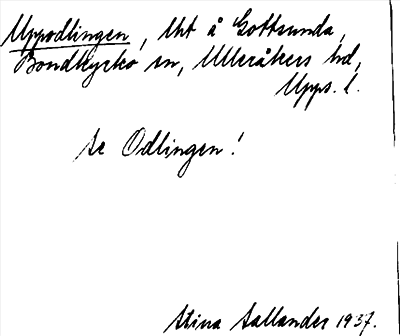 Uppodlingen, Uht å Gottsunda,
Bondkyrko sn, Ulleråkers hd,
Upps. l.
se Odlingen!
Stina Sallander 1937.